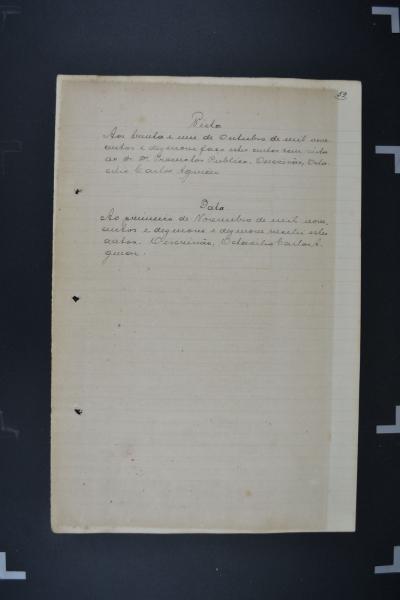 53
Vista
Aos trinta e um de Outubro de mil nove
centos e dezenove faço estes autos com vista
ao Dr. Promotor Publico. Oescrivão, Octa
cilio Carlos
Data
Ao primeiro de Novembro de mil nove
centos e dezenove e dezenove recebi estes
autos. Oescrivão, Octacilio Carlos